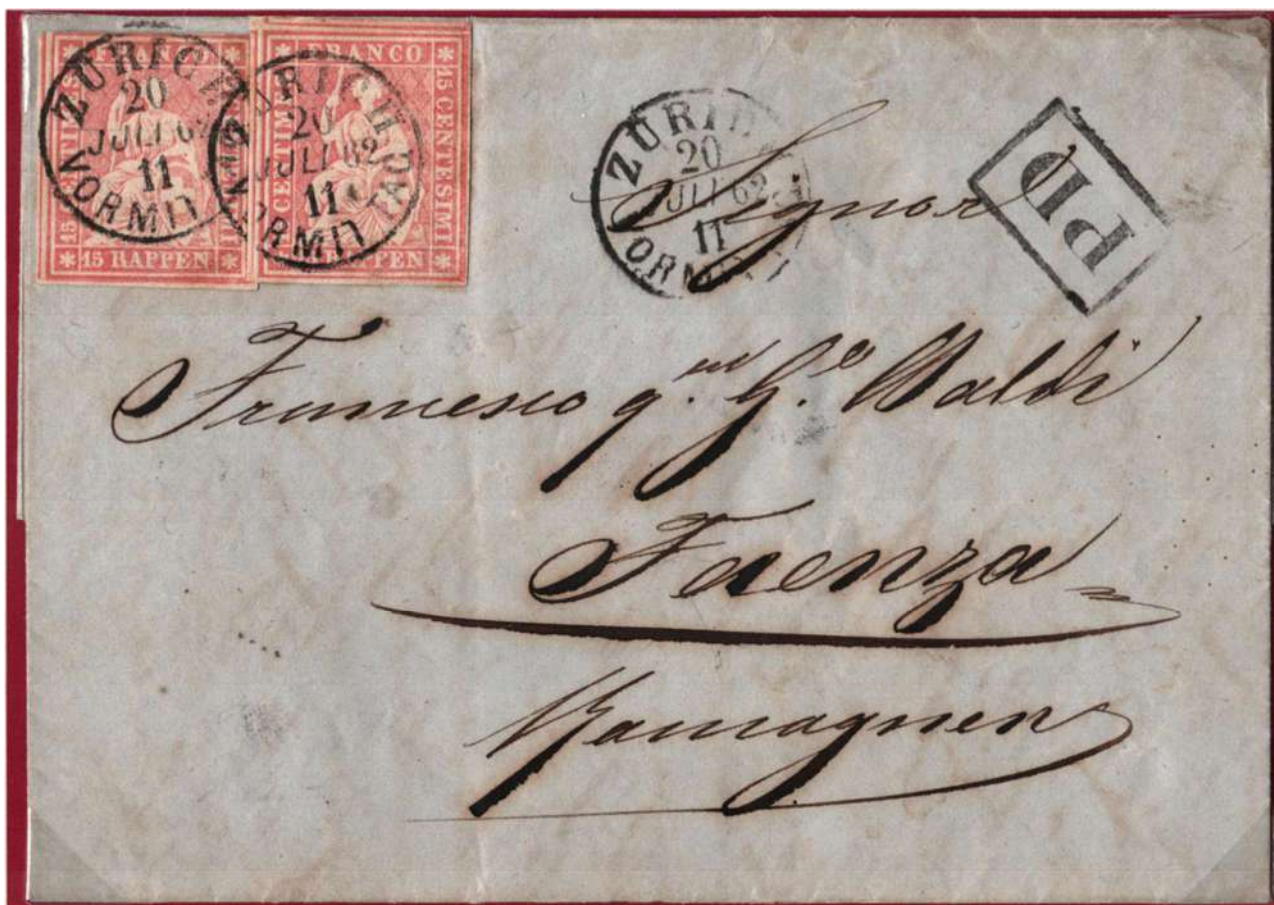 FRANCO
15 RAPPEN
ZÜRICH
20
JULI 62
11
VORMIT
FRANCO
15 CENTESIMI
RAPPEN
ZÜRICH
20
JULI 62
11
VORMITTAG
ZÜRICH
20
JULI 62
11
VORMITT
PD
Signor
Francesco q.m G.e Baldi
Faenza
Romagnen